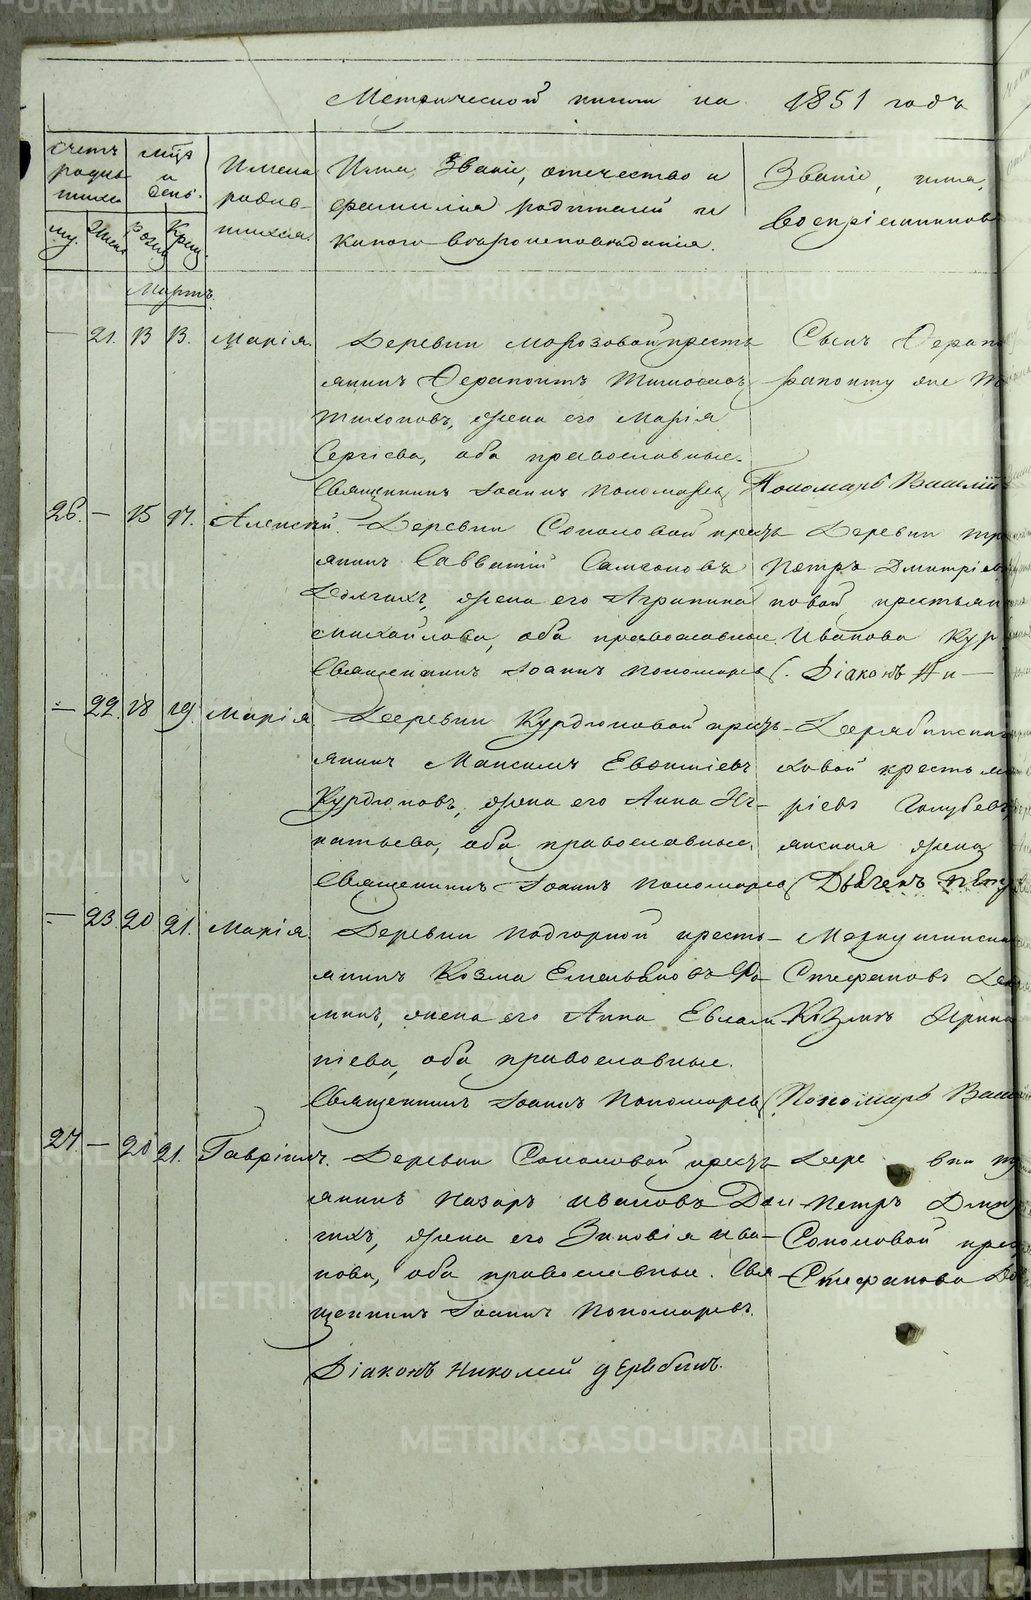 Метрической книги на 1851 годъ
Счетъ родившихся
муж. женск.
Мѣсяцъ и день
Рожд. Крещ.
Имена родившихся.
Имя, Званіе, отечество и
фамилія родителей и
какого вѣроисповѣданія.
Званіе, имя,
воспріемниковъ
Мартъ
— 21. 13 13. Марія. Деревни Морозовой кресть-
янинъ Ѳерапонтъ
Тихоновъ, жена его Марія
Сергіева, оба православные.
Священникъ Іоаннъ Пономаревъ
Сынъ Ѳерапо
Пономарь Василій
26. — 15 17. Алексій. Деревни Соколовой кресть-
янинъ Савватій Самсоновъ
Долгихъ, жена его Агрипина
Михайлова, оба православные.
Священникъ Іоаннъ Пономаревъ.
Деревни
Петръ Дмитріевъ
новой крестьян
Иванова Кур
Діаконъ Ни—
— 22. 18 19. Марія Деревни Курдюковой кресть-
янинъ Максимъ Евѳиміевъ
Курдюковъ, жена его Анна Иг-
натьева, оба православные.
Священникъ Іоаннъ Пономаревъ
ховой крестьян
ріевъ Голубевъ
янская жена
Дьячекъ Петр
— 23. 20 21. Марія. Деревни Подгорной кресть-
янинъ Козма Емельяновъ Фо-
минъ, жена его Анна Евлам-
піева, оба православные.
Священникъ Іоаннъ Пономаревъ
Меркушинска
Стефановъ
Козминъ Ирина
Пономарь Васи
27. — 20 21. Гавріилъ. Деревни Соколовой кресть-
янинъ Назаръ Ивановъ Дол-
гихъ, жена его Зиновія Ива-
нова, оба православные. Свя-
щенникъ Іоаннъ Пономаревъ.
Діаконъ Николай Дерябинъ.
Деревни
Петръ Дмит
Соколовой крес
Стефанова
METRIKI.GASO-URAL.RU